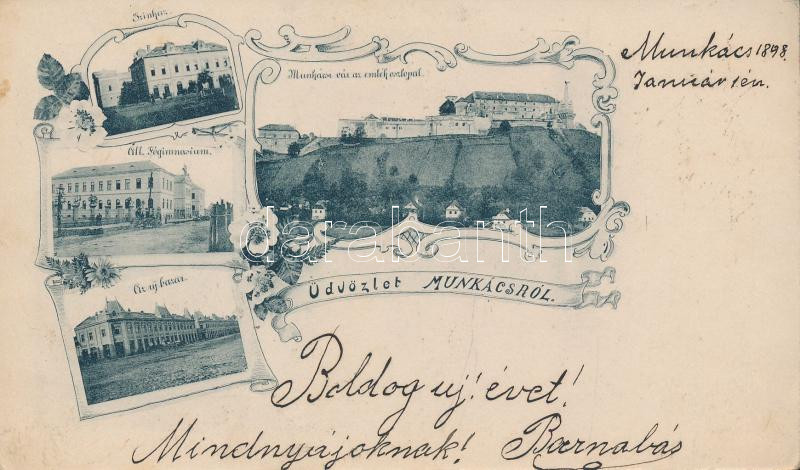 Szinház.
Munkácsi vár az emlék oszlopal.
Munkács 1898.
Január 1én.
Áll. Fögimnasium.
darabanth
Az új bazár.
Üdvözlet MUNKÁCSRÓL.
Boldog uj! évet!
Mindnyájoknak! Barnabás